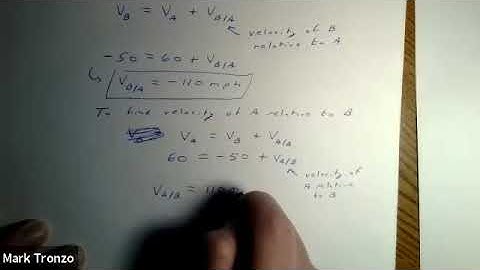 V_B = V_A + V_B/A
velocity of B
relative to A
-50 = 60 + V_B/A
V_B/A = -110 mph
To find velocity of A relative to B
V_A = V_B + V_A/B
60 = -50 + V_A/B
velocity of
A relative
to B
V_A/B = 110
Mark Tronzo